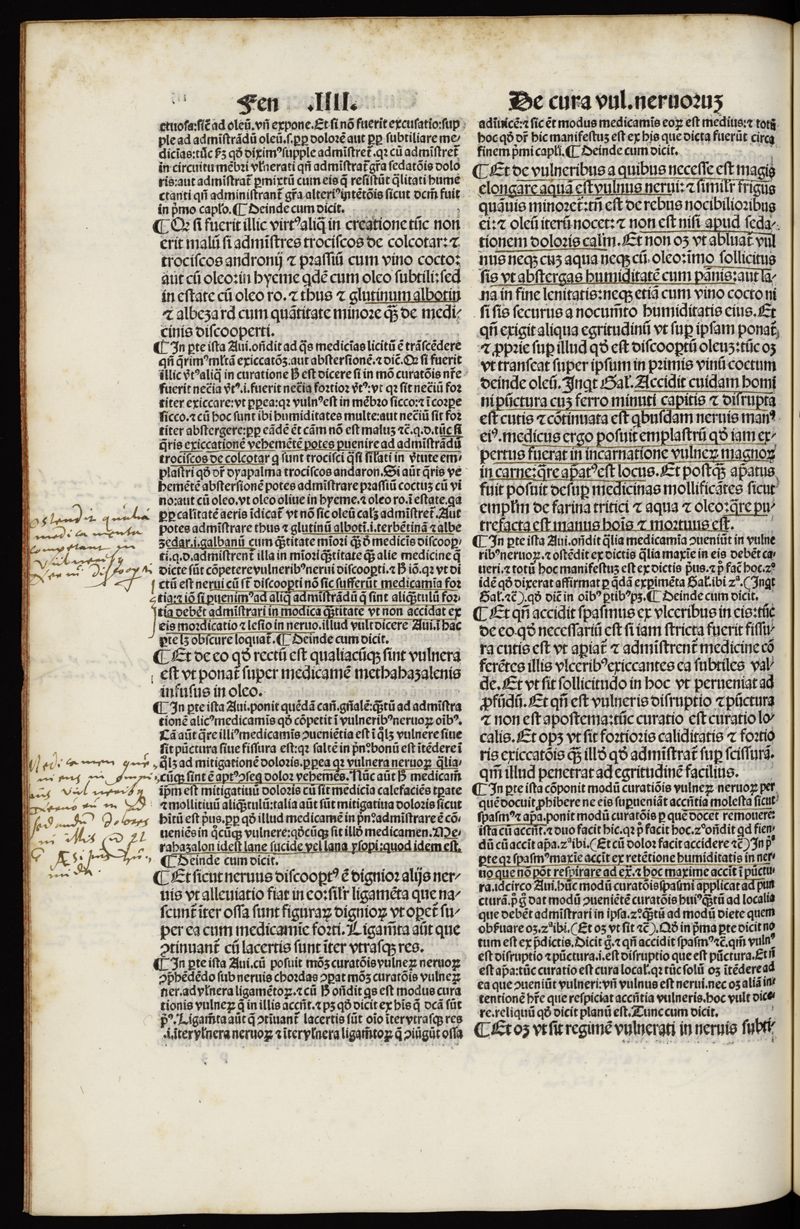 Fen .IIII.
De cura vul. neruoruȝ
ctuosa: sic̄ ad oleū. vn̄ expone. Et si nō fuerit excusatio: sup
ple ad admīstrādū oleū. s. ꝓp̄ dolorē aut ꝓp̄ subtiliare me-
dicias: tūc ſȝ qd̄ dixim⁹ supple admīstret̄. qꝛ cū admīstret̄
in circuitu mēbri vl̄nerati qn̄ admistrat̄ gr̄a sedatōis dolo
ris: aut admistrat̄ ꝑmixtū cum eis q̄ resistūt q̄litati hume
ctanti qn̄ administrant̄ gr̄a alteri⁹ ītētōis sicut dcm̄ fuit
in pⁱmo caplo. ¶ Deinde cum dicit.
¶ Qꝛ si fuerit illic virt⁹ aliq̄ in creatione tūc non
erit malū si admīstres trociscos de colcotar: ⁊
trociscos andronij ⁊ passiū cum vino cocto:
aut cū oleo: in hyeme qdē cum oleo subtili: sed
in estate cū oleo ro. ⁊ thus ⁊ glutinum albotin
⁊ albezard cum quātitate minore qȝ de medi-
cinis discooperti.
¶ In ꝑte ista Aui. on̄dit ad qs̄ medicias licitū ē trāscēdere
qn̄ qrim⁹ ml̄tā exiccatōȝ. aut abstersionē. ⁊ dic̄. Qꝛ si fuerit
illic vt⁹ aliq̄ in curatione
fuerit nec̄ia vt⁹. i. fuerit nec̄ia fortior vt⁹: vt qꝛ sit neciū for
titer exiccare: vt ꝓpea: qꝛ vuln⁹ est in mēbro sicco: ⁊ ī corpe
sicco. ⁊ cū hoc sunt ibi humiditates multe: aut neciū sit for
titer abstergere: ꝓp̄ eādē ēt cām nō est maluȝ ⁊c̄. q. d. tūc si
q̄ris exiccationē vehemētē potes puenire ad admīstrādū
trociscos de colcotar q̄ sunt trocisci qⁱsi sil̄ati in v̄tute em-
plastri qd̄ dr̄ dyapalma trociscos andaron. Si aut̄ q̄ris ve
hemētē abstersionē potes admīstrare passiū coctuȝ cū vi
no: aut cū oleo. vt oleo oliue in hyeme. ⁊ oleo ro. ī estate. qa
ꝓp̄ calitatē aeris īdicat̄ vt nō sic oleū calȝ admīstret̄. Aut
potes admīstrare thus ⁊ glutinū albotī. i. terbētinā ⁊ albe
zedar. i. galbanū cum q̄titate mīori qȝ ō medicīs discoop̄
ti. q. d. admīstrent̄ illa in mīori q̄titate qȝ alie medicine q̄
dicte sūt cōpetere vulnerib⁹ nerui discoopti.
ctū est nerui cū st̄ discoopti nō sic sufferūt medicamīa for
tia: ⁊ iō si puenim⁹ ad aliq̄ admīstrādū q̄ sint aliqȝtulū for-
tia debēt admīstrari in modica q̄titate vt non accidat ex
eis mordicatio ⁊ lesio in neruo. illud vult dicere Aui. ī hac
ꝑte lȝ obscure loquat̄. ¶ Deinde cum dicit.
¶ Et de eo qd̄ rectū est qualiacūqȝ sint vulnera
est vt ponat̄ super medicamē methahazalenis
infusus in oleo.
¶ In ꝑte ista Aui. ponit quēdā can̄. gn̄alē: qȝtū ad admīstra
tionē alic⁹ medicamīs qd̄ cōpetit ī vulnerib⁹ neruoꝝ oib⁹.
Cā aūt q̄re illi⁹ medicamīs ꝯueniētia est ī qⁱlȝ vulnere siue
sit pūctura siue fissura est: qꝛ saltē in pⁱn⁰ bonū est ītēdere ī
qⁱlȝ ad mitigationē doloris. ꝓpea qꝛ vulnera neruoꝝ q̄lia-
cūqȝ sint ē apt⁹ ꝯseq̄ dolor vehemēs. Nūc aūt ꝑ medicam̄
ip̄m est mitigatiuū doloris cū sit medicīa calefaciēs tꝑate
⁊ mollitiuū aliqȝtulū: talia aūt sūt mitigatiua doloris sicut
hītū est pⁱus. ꝓp̄ qd̄ illud medicamē in pⁱn⁰ admīstrare ē cō-
ueniēs in qcūqȝ vulnere: qd̄cūqȝ sit illd̄ medicamen. Me-
rahazalon idest lane sucide vel lana ysopi: quod idem est.
¶ Deinde cum dicit.
¶ Et sicut neruus discoopt⁹ ē dignior alijs ner-
uis vt alleuiatio fiat in eo: silr̄ ligamēta que na-
scunt̄ īter ossa sunt figuraꝝ digniorꝝ vt opet̄ su-
per ea cum medicamīe forti. Ligam̄ta aūt que
ꝯtinuant̄ cū lacertis sunt īter vtrasqȝ res.
¶ In ꝑte ista Aui. cū posuit moȝ curatōis vulneꝝ neruoꝝ
ꝯp̄hēdēdo sub neruis chordas ꝯpat moȝ curatōis vulneꝝ
ner. ad vl̄nera ligamētoꝝ. ⁊ cū
tionis vulneꝝ q̄ in illis accn̄t. ⁊ pȝ qd̄ dicit ex his q̄ dcā sūt
pⁱ⁹. Ligam̄ta aūt q̄ ꝯtinuant̄ lacertis sūt oīo īter vtrasqȝ res
.i. īter vl̄nera neruoꝝ ⁊ īter vl̄nera ligam̄toꝝ q̄ ꝯiūgūt ossa
adīuicē: ⁊ sic ēt modus medicamīs eoꝝ est medius: ⁊ totū
hoc qd̄ dr̄ hic manifestuȝ est ex his que dicta fuerūt circa
finem pⁱmi capl̄i. ¶ Deinde cum dicit.
¶ Et de vulneribus a quibus necesse est magis
elongare aquā est vulnus nerui: ⁊ similr̄ frigus
quāuis minoret̄: tn̄ est de rebus nocibilioribus
ei: ⁊ oleū iterū nocet: ⁊ non est nisi apud seda-
tionem doloris calm̄. Et non oȝ vt abluat̄ vul
nus neqȝ cuȝ aqua neqȝ cū oleo: imo sollicitus
sis vt abstergas humiditatē cum pānis: aut la-
na in fine lenitatis: neqȝ etiā cum vino cocto ni
si sis securus a nocumto humiditatis eius. Et
qn̄ exigit aliqua egritudinū vt sup ipsam ponat̄
⁊ ꝓprie sup illud qd̄ est discooptū oleuȝ: tūc oȝ
vt transeat super ipsum in primis vinū coctum
deinde oleū. Inqt Gal. Accidit cuidam homi
ni pūctura cuȝ ferro minuti capitis ⁊ disrupta
est cutis ⁊ cōtinuata est qbusdam neruis man⁹
ei⁹. medicus ergo posuit emplastrū qd̄ iam ex-
pertus fuerat in incarnatione vulneꝝ magnoꝝ
in carne: q̄re apat⁹ est locus. Et postqȝ apatus
fuit posuit desup medicinas mollificātes sicut
emplm̄ de farina tritici ⁊ aqua ⁊ oleo: q̄re pu-
trefacta est manus hoīs ⁊ mortuus est.
¶ In ꝑte ista Aui. on̄dit q̄lia medicamīa ꝯueniūt in vulne
rib⁹ neruoꝝ. ⁊ ostēdit ex dictis q̄lia maxie in eis debēt ca-
ueri. ⁊ totū hoc manifestuȝ est ex dictis pⁱus. ⁊ ꝑ fac̄ hoc. 2⁰
idē qd̄ dixerat affirmat ꝑ qdā expimēta Gal. ibi 2ª. (Inqt
Gal. ⁊c̄.) qd̄ dic̄ in oib⁹ ptib⁹ pȝ. ¶ Deinde cum dicit.
¶ Et qn̄ accidit spasmus ex vlceribus in eis: tūc
de eo qd̄ necessariū est si iam stricta fuerit fissu-
ra cutis est vt apiat̄ ⁊ admīstrent̄ medicine cō
ferētes illis vlcerib⁹ exiccantes ea subtiles val-
de. Et vt sit sollicitudo in hoc vt perueniat ad
ꝓfūdū. Et qn̄ est vulneris disruptio ⁊ pūctura
⁊ non est apostema: tūc curatio est curatio lo-
calis. Et opȝ vt sit fortioris caliditatis ⁊ fortio
ris exiccatōis qȝ illd̄ qd̄ admīstrat̄ sup scissurā.
qm̄ illud penetrat ad egritudinē facilius.
¶ In ꝑte ista cōponit modū curatiōis vulneꝝ neruoꝝ per
quē docuit ꝓhibere ne eis supueniāt accn̄tia molesta sicut
spasm⁹ ⁊ apa. ponit modū curatōis ꝑ quē docet remouere:
ista cū accn̄t. ⁊ duo facit hic. qꝛ pⁱ facit hoc. 2⁰ on̄dit qd̄ fien-
dū cū accn̄t apa. 2ª ibi. (Et cū dolor facit accidere ⁊c̄) In pⁱª
ꝑte qꝛ spasm⁹ maxie accn̄t ex retētione humiditatis in ner-
uo que nō pōt respirare ad ex̄. ⁊ hoc maxime accīt ī pūctu-
ra. idcirco Aui. hūc modū curatōis spasmi applicat ad pun
cturā. pⁱ gⁱ dat modū ꝯueniētē curatōis hui⁹ qȝtū ad localia
que debēt admīstrari in ipsa. 2⁰ qȝtū ad modū diete quem
obseruare oȝ. 2ª ibi. (Et oȝ vt sit ⁊c̄). Qd̄ in pⁱma ꝑte dicit no
tum est ex p̄dictis. Dicit gⁱ. ⁊ qn̄ accidit spasm⁹ ⁊c̄. qm̄ vuln⁹
est disruptio ⁊ pūctura. i. est disruptio que est pūctura. Et n̄
est apa: tūc curatio est cura local̄. qꝛ tūc solū oȝ ītēdere ad
ea que ꝯueniūt vulneri: vn̄ vulnus est nerui. nec oȝ aliā in-
tentionē hr̄e que respiciat accn̄tia vulneris. hoc vult dice-
re. reliquū qd̄ dicit planū est. Tunc cum dicit.
¶ Et oȝ vt sit regimē vulnerati in neruis subti-
ostendit qualia
medicamenta
competant in
vulneribus
nerui discoperti
Medicamen que-
niens in omni-
bus vulneribus
neruorum
sedandum dolores